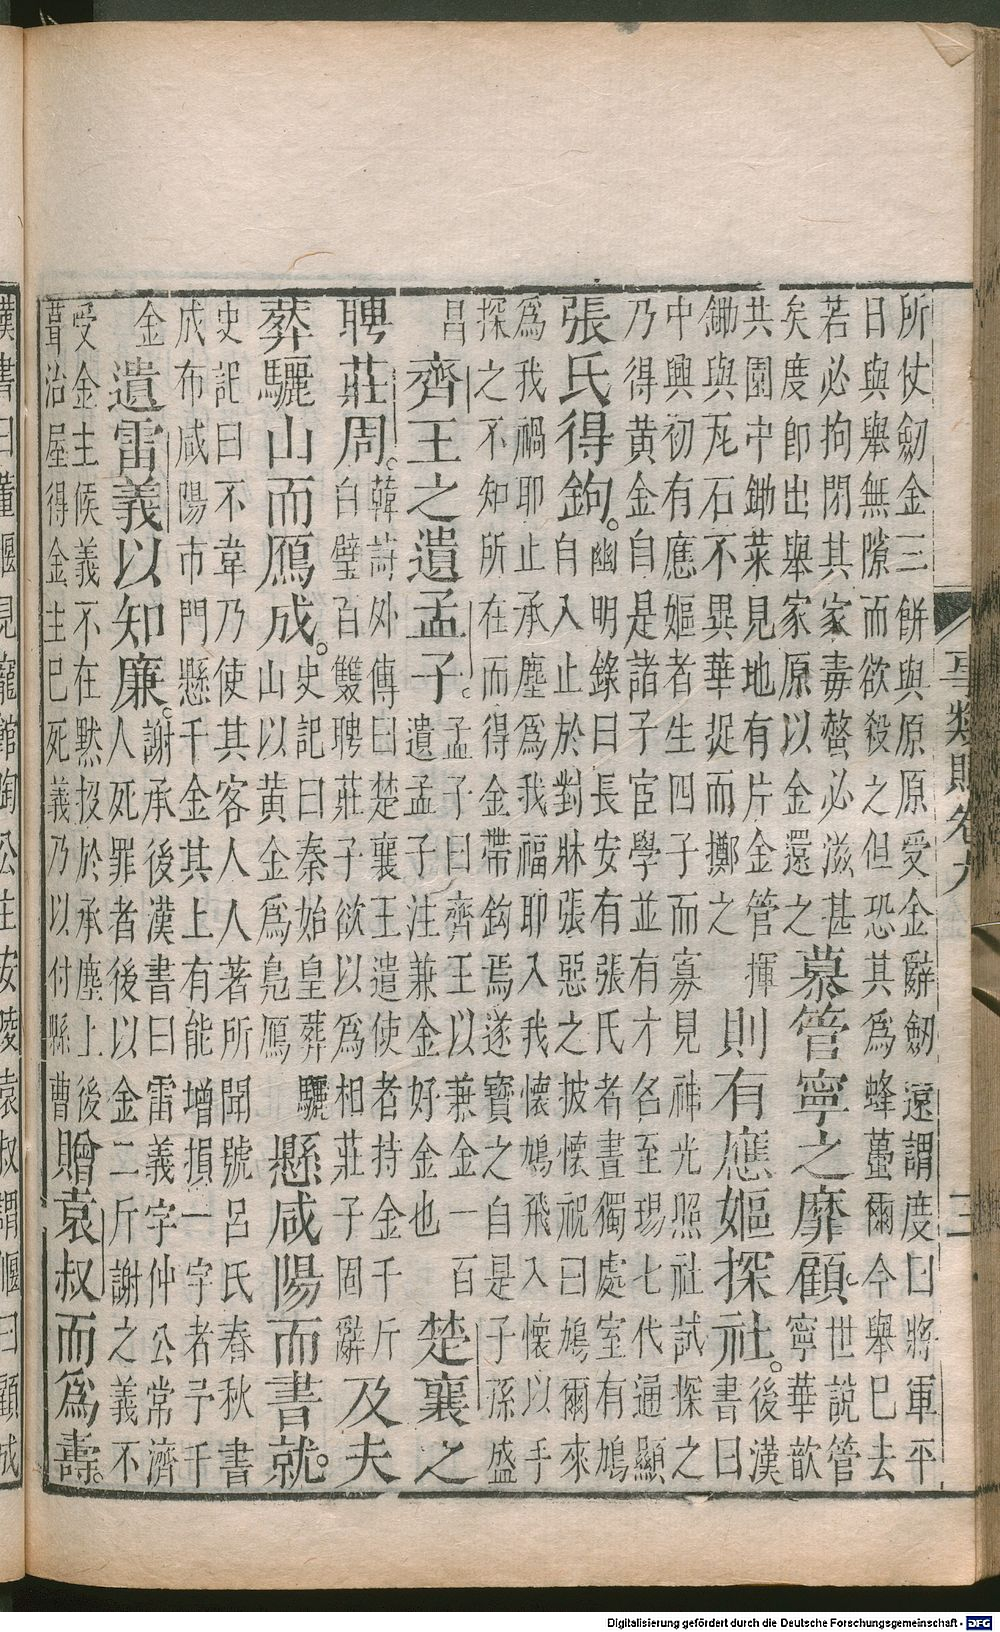 所仗劒金三餅與原原受金辭劒遠謂度曰將軍平
日與舉無隙而欲殺之但恐其為蜂蠆爾今舉巳去
若必拘閉其家毒螫必滋甚
矣度即出舉家原以金還之
慕管寧之靡顧。
世說管
寧華歆
共園中鋤菜見地有片金管揮
鋤與瓦石不異華捉而擲之
則有應嫗探社。
後漢
書曰
中興初有應嫗者生四子而寡見神光照社試探之
乃得黃金自是諸子宦學並有才名至瑒七代通顯
張氏得鉤。
幽明錄曰長安有張氏者晝獨處室有鳩
自入止於對牀張惡之披懷祝曰鳩爾來
為我禍耶止承塵為我福耶入我懷鳩飛入懷以手
探之不知所在而得金帶鈎焉遂寶之自是子孫盛
昌
齊王之遺孟子。
孟子曰齊王以兼金一百
遺孟子注兼金好金也
楚襄之
聘莊周。
韓詩外傳曰楚襄王遣使者持金千斤
白璧百雙聘莊子欲以為相莊子固辭
及夫
葬驪山而鴈成。
史記曰秦始皇葬驪
山以黃金為鳧鴈
懸咸陽而書就。
史記曰不韋乃使其客人人著所聞號呂氏春秋書
成布咸陽市門懸千金其上有能增損一字者予千
金
遺雷義以知廉。
謝承後漢書曰雷義字仲公常濟
人死罪者後以金二斤謝之義不
受金主候義不在默投於承塵上後
葺治屋得金主巳死義乃以付縣曹
贈袁叔而為壽。
漢書曰董偃見寵館陶公主安陵袁叔謂偃曰顧城
事類賦卷九
三
Digitalisierung gefördert durch die Deutsche Forschungsgemeinschaft - DFG